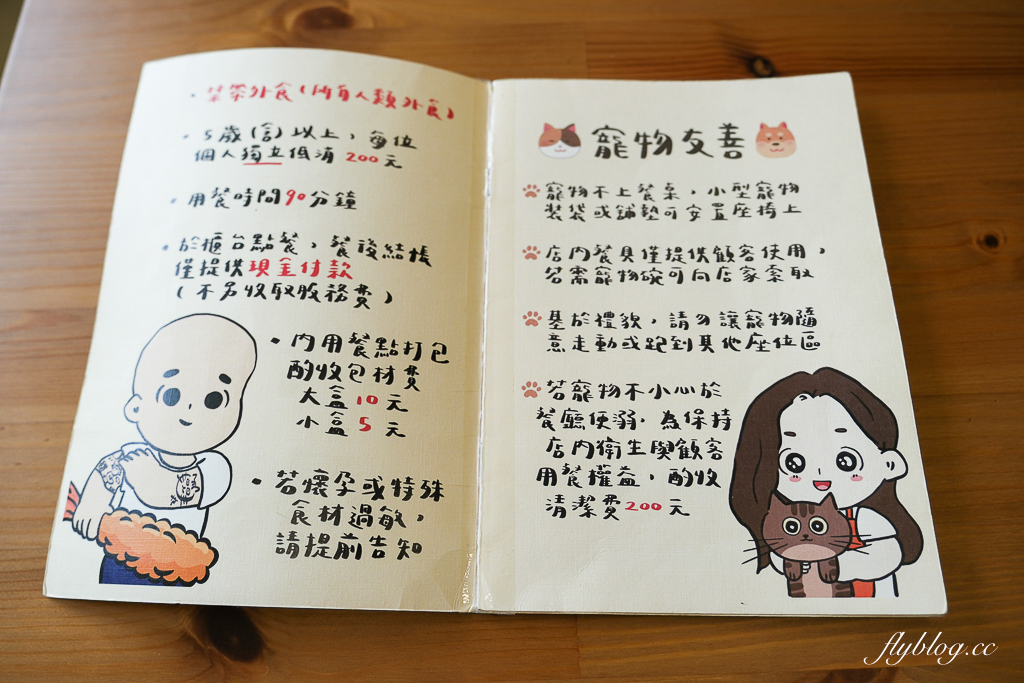 • 禁帶外食(所有人類外食)
• 5歲(含)以上，每位
個人獨立低消200元
• 用餐時間90分鐘
• 於櫃台點餐，餐後結帳
僅提供現金付款
(不另收取服務費)
• 內用餐點打包
酌收包材費
大盒10元
小盒5元
• 若懷孕或特殊
食材過敏，
請提前告知
寵物友善
寵物不上餐桌，小型寵物
裝袋或鋪墊可安置座椅上
店內餐具僅提供顧客使用，
若需寵物碗可向店家索取
基於禮貌，請勿讓寵物隨
意走動或跑到其他座位區
若寵物不小心於
餐廳便溺，為保持
店內衛生與顧客
用餐權益，酌收
清潔費200元
flyblog.cc